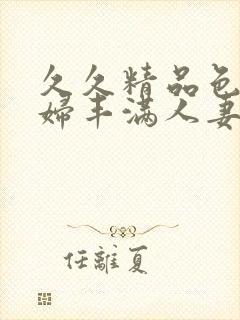 久久精品色
婦丰满人妻
任離夏